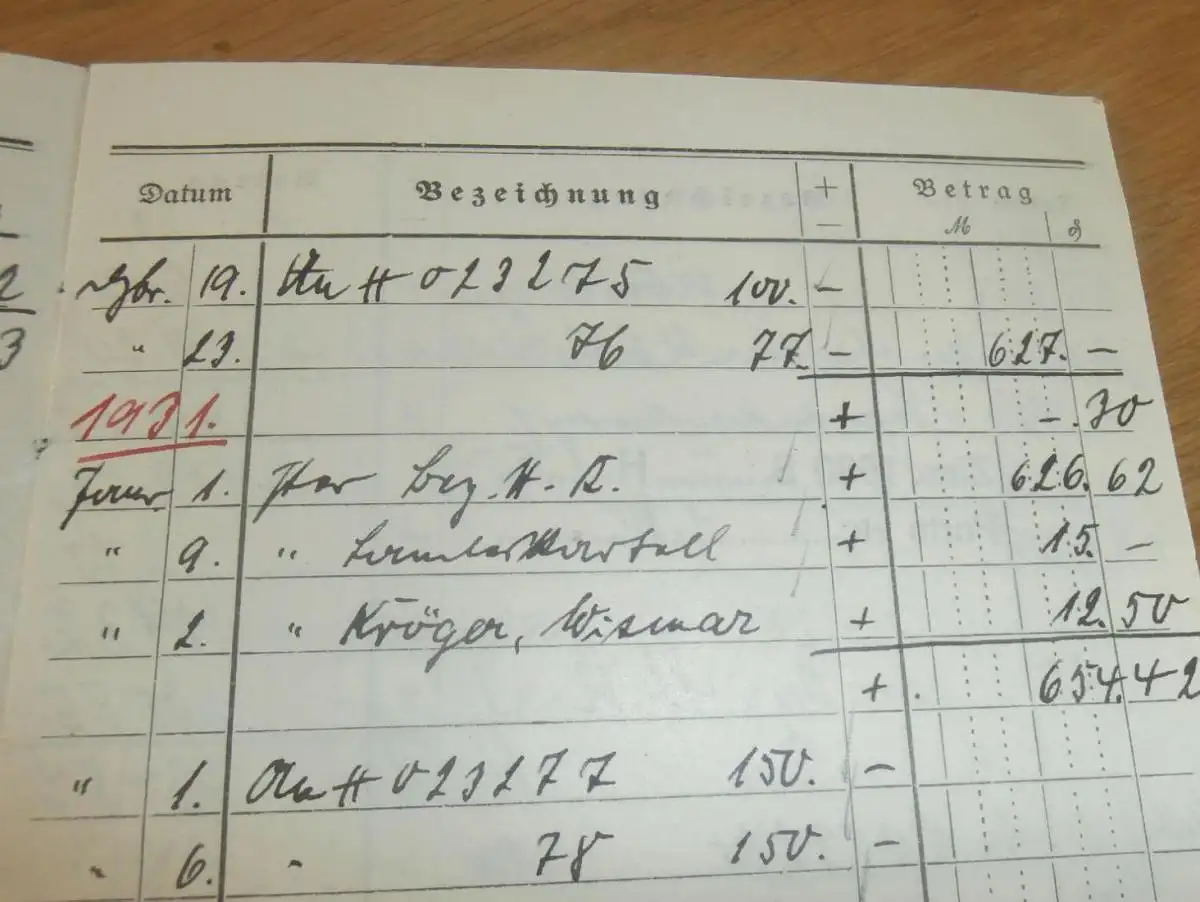 Datum Bezeichnung + − Betrag
M ₰
19. An H 023275 100. −
2
" 23. 76 77. − 627. −
3
1931. + −.30
Janr. 1. Per Bez. H. K. + 626.62
" 9. " Landeskartell + 15. −
" 2. " Kröger, Wismar + 12.50
+ 654.42
" 1. An H 023277 150. −
" 6. " 78 150. −